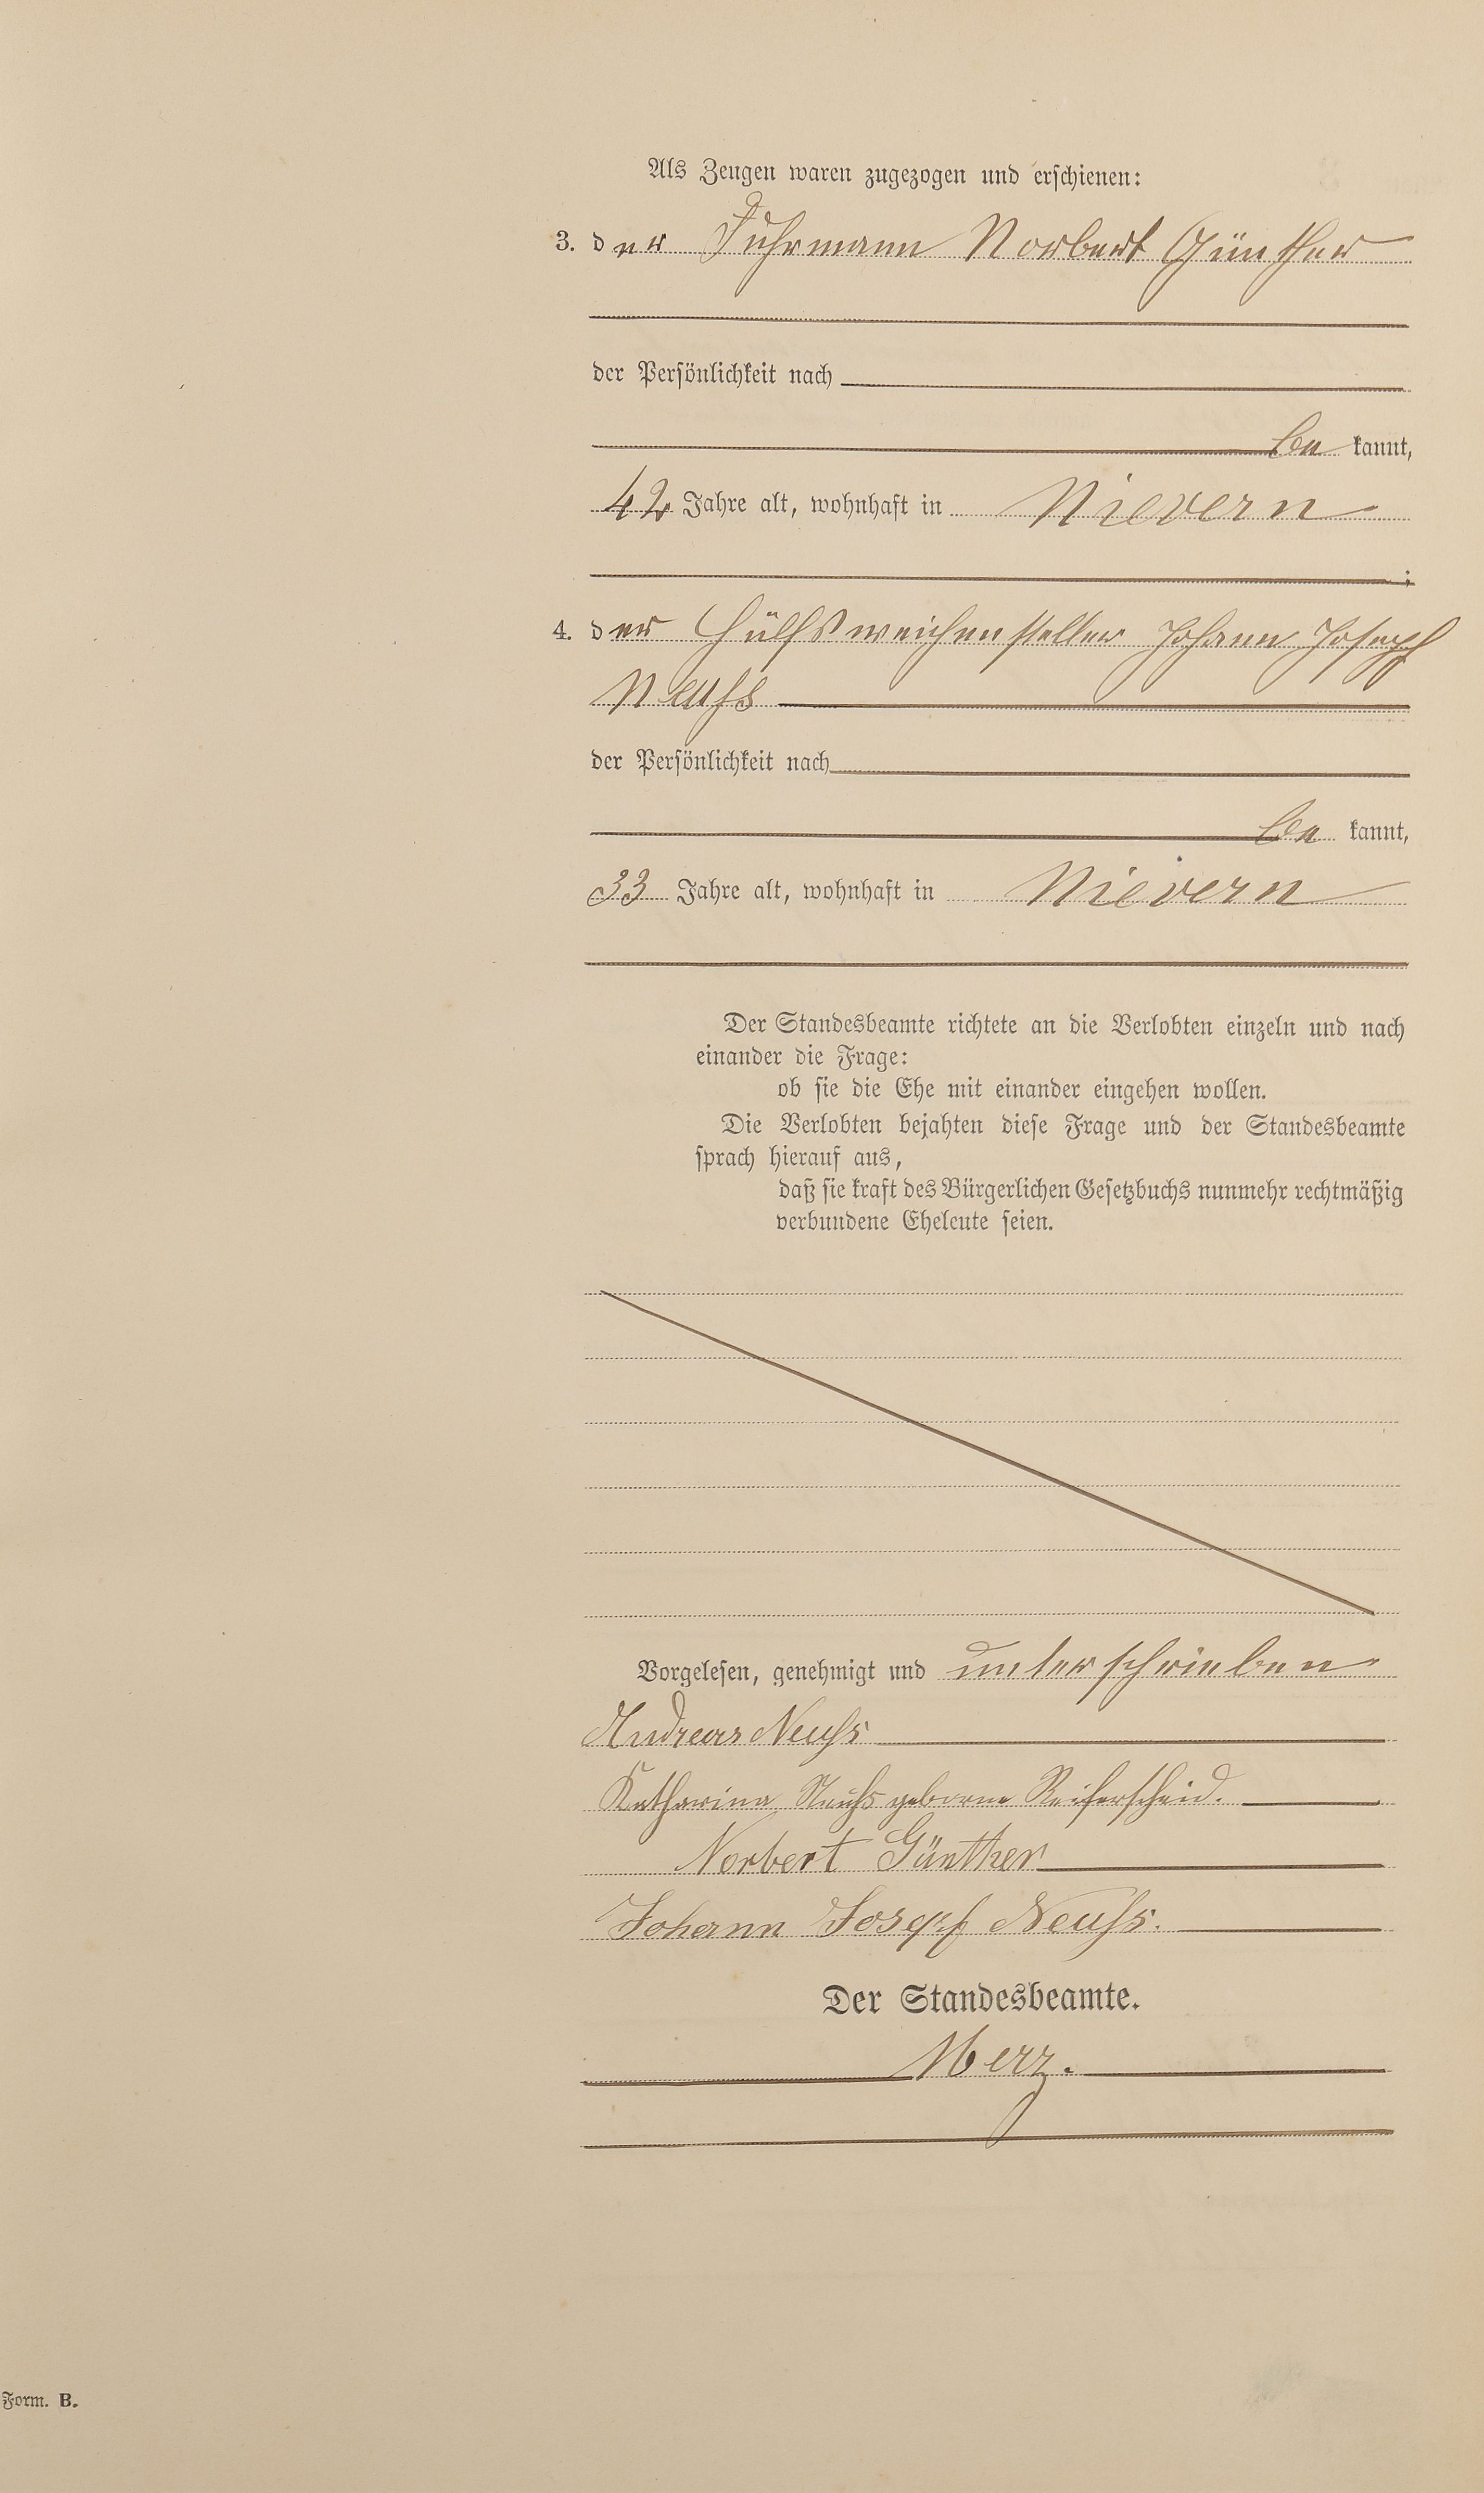 Als Zeugen waren zugezogen und erschienen:
3. der Fuhrmann Norbert Günther
der Persönlichkeit nach
be kannt,
42 Jahre alt, wohnhaft in Nievern
;
4. der Hülfsweichensteller Johann Joseph
Neuſs
der Persönlichkeit nach
be kannt,
33 Jahre alt, wohnhaft in Nievern
Der Standesbeamte richtete an die Verlobten einzeln und nach
einander die Frage:
ob sie die Ehe mit einander eingehen wollen.
Die Verlobten bejahten diese Frage und der Standesbeamte
sprach hierauf aus,
daß sie kraft des Bürgerlichen Gesetzbuchs nunmehr rechtmäßig
verbundene Eheleute seien.
Vorgelesen, genehmigt und unterschrieben
Andreas Neuſs
Katharina Neuſs geborne Reiferscheid.
Norbert Günther
Johann Josepf Neuſs.
Der Standesbeamte.
Merz.
Form. B.